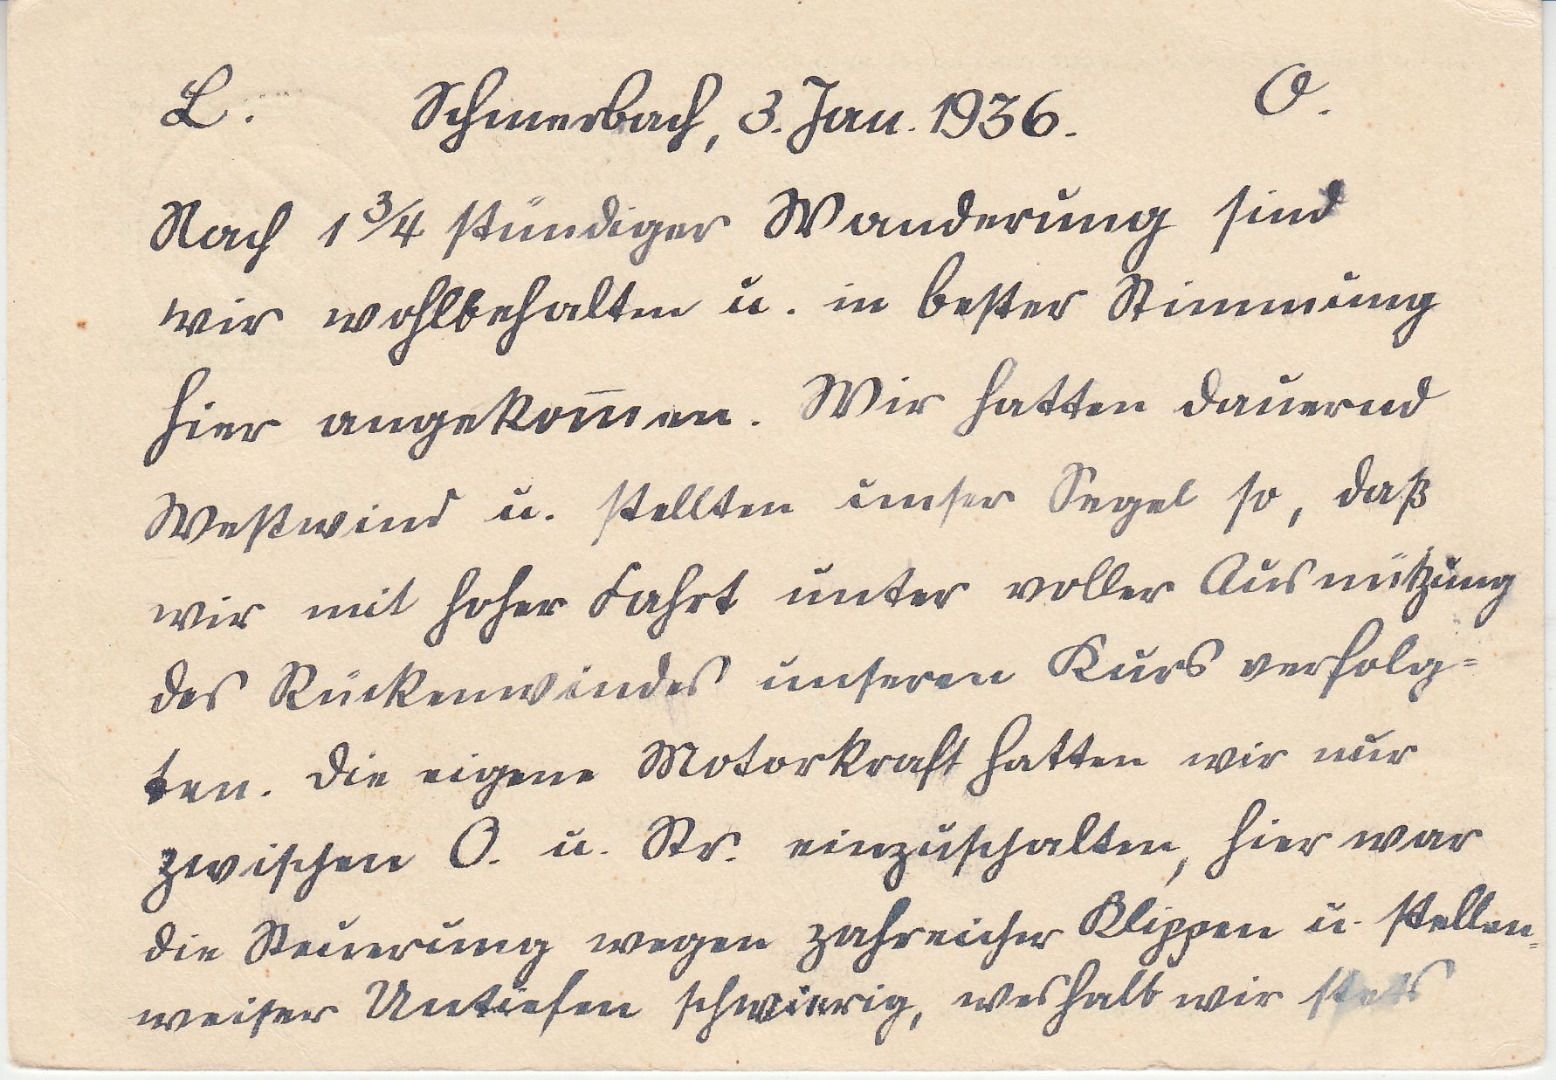 L. Schmerbach, 3. Jan. 1936. O.
Nach 1 3/4 stündiger Wanderung sind
wir wohlbehalten u. in bester Stimmung
hier angekom̅en. Wir hatten dauernd
Westwind u. stellten unser Segel so, daß
wir mit hoher Fahrt unter voller Ausnützung
des Rückenwindes unseren Kurs verfolg=
ten. Die eigene Motorkraft hatten wir nur
zwischen O. u. Str. einzuschalten, hier war
die Steuerung wegen zahreicher Klippen u. stellen=
weiser Untiefen schwierig, weshalb wir stets